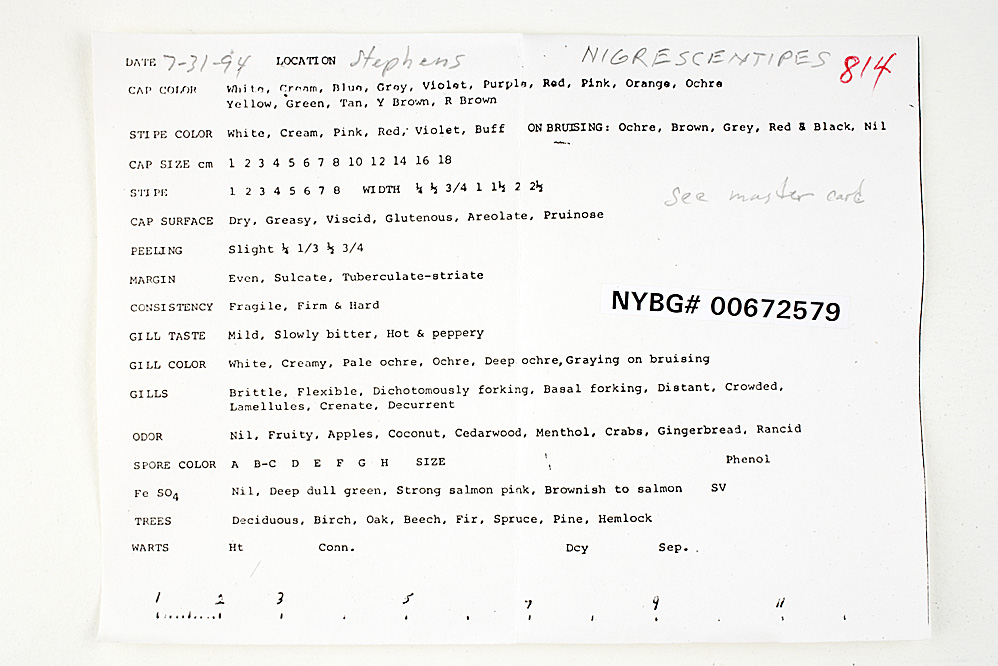 DATE 7-31-94 LOCATION Stephens NIGRESCENTIPES 814
CAP COLOR White, Cream, Blue, Grey, Violet, Purple, Red, Pink, Orange, Ochre
Yellow, Green, Tan, Y Brown, R Brown
STIPE COLOR White, Cream, Pink, Red, Violet, Buff ON BRUISING: Ochre, Brown, Grey, Red & Black, Nil
CAP SIZE cm 1 2 3 4 5 6 7 8 10 12 14 16 18
STIPE 1 2 3 4 5 6 7 8 WIDTH ¼ ½ 3/4 1 1½ 2 2½
see master card
CAP SURFACE Dry, Greasy, Viscid, Glutenous, Areolate, Pruinose
PEELING Slight ¼ 1/3 ½ 3/4
MARGIN Even, Sulcate, Tuberculate-striate
CONSISTENCY Fragile, Firm & Hard
NYBG# 00672579
GILL TASTE Mild, Slowly bitter, Hot & peppery
GILL COLOR White, Creamy, Pale ochre, Ochre, Deep ochre, Graying on bruising
GILLS Brittle, Flexible, Dichotomously forking, Basal forking, Distant, Crowded,
Lamellules, Crenate, Decurrent
ODOR Nil, Fruity, Apples, Coconut, Cedarwood, Menthol, Crabs, Gingerbread, Rancid
SPORE COLOR A B-C D E F G H SIZE Phenol
Fe SO4 Nil, Deep dull green, Strong salmon pink, Brownish to salmon SV
TREES Deciduous, Birch, Oak, Beech, Fir, Spruce, Pine, Hemlock
WARTS Ht Conn. Dcy Sep.
1 2 3 5 7 9 11